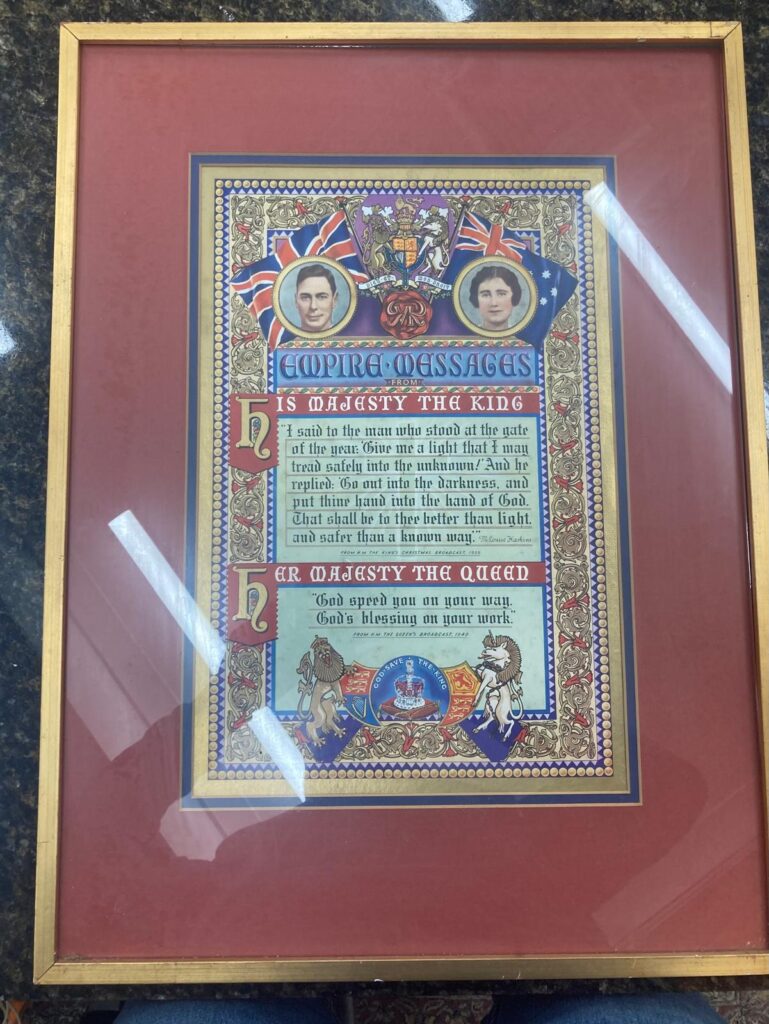 DIEU ET MON DROIT
GR
EMPIRE · MESSAGES
FROM
HIS MAJESTY THE KING
"I said to the man who stood at the gate
of the year: 'Give me a light that I may
tread safely into the unknown!' And he
replied: 'Go out into the darkness, and
put thine hand into the hand of God.
That shall be to thee better than light,
and safer than a known way.'"
M. Louise Haskins
FROM H.M. THE KING'S CHRISTMAS BROADCAST, 1939
HER MAJESTY THE QUEEN
"God speed you on your way.
God's blessing on your work."
FROM H.M. THE QUEEN'S BROADCAST, 1940
GOD·SAVE·THE·KING